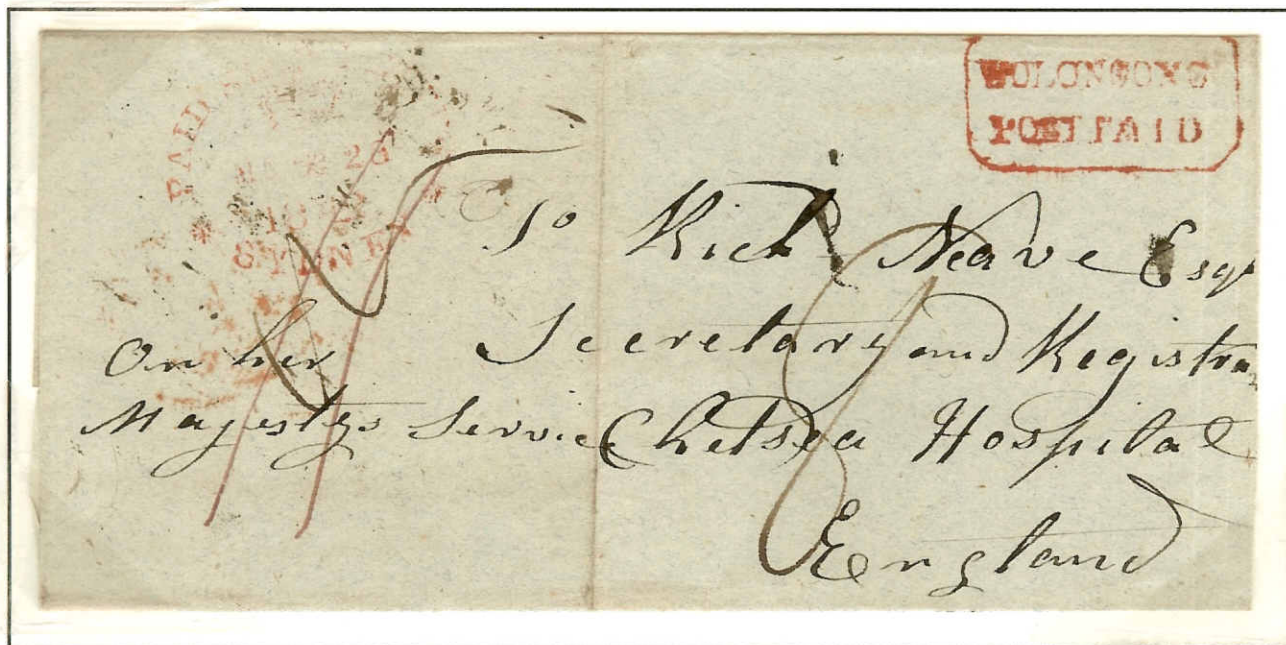 WOLONGONG
POST PAID
PAID
SYDNEY
To Richd Neave Esqr
Secretary and Registrar
Chelsea Hospital
England
On her
Majestys Service